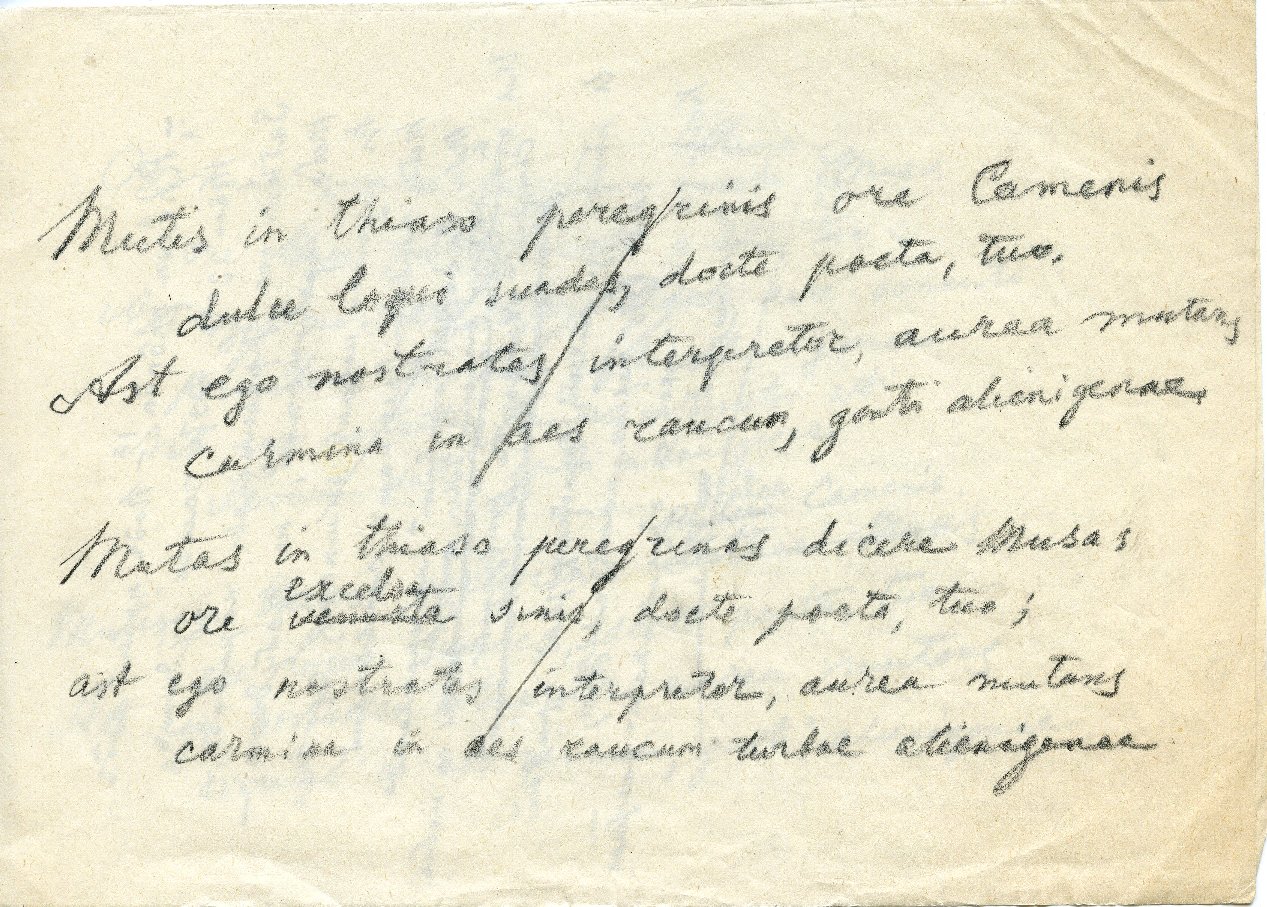 Mutis in thiaso peregrinis ore Camenis
dulce loqui suades, docte poeta, tuo.
Ast ego nostrates interpretor, aurea mutans
carmina in aes raucum, genti alienigenae
Mutas in thiaso peregrinas dicere Musas
excelsa
ore venusta sinis, docte poeta, tuo;
ast ego nostrates interpretor, aurea mutans
carmina in aes raucum turbae alienigenae